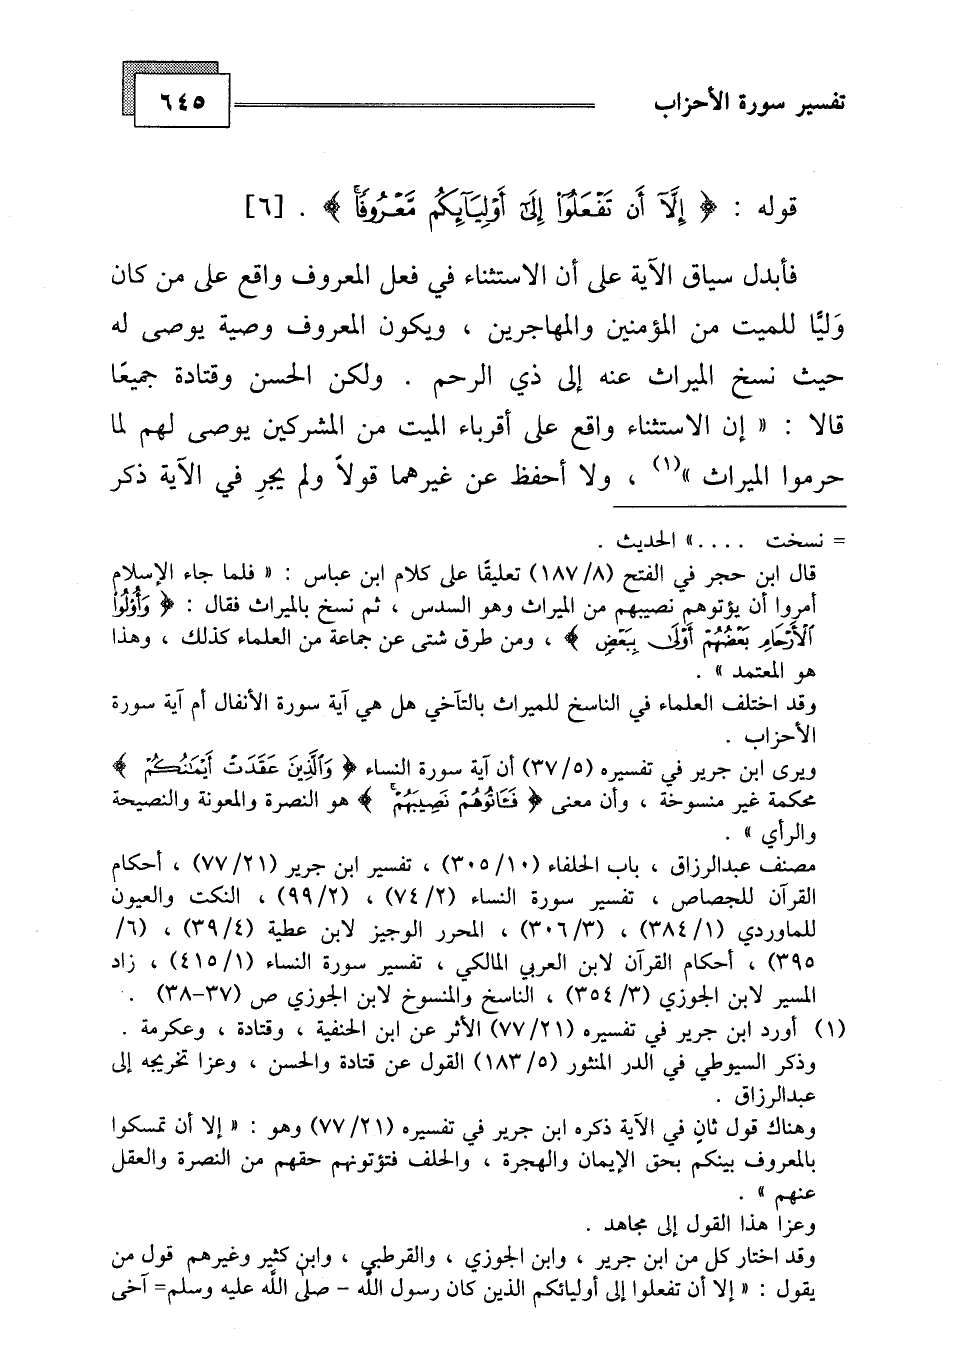 تفسير سورة الأحزاب
٦٤٥
قوله : ﴿ إِلَّآ أَن تَفْعَلُوٓا۟ إِلَىٰٓ أَوْلِيَآئِكُم مَّعْرُوفًا ﴾ . [٦]
فأبدل سياق الآية على أن الاستثناء في فعل المعروف واقع على من كان
وَليًّا للميت من المؤمنين والمهاجرين ، ويكون المعروف وصية يوصى له
حيث نسخ الميراث عنه إلى ذي الرحم . ولكن الحسن وقتادة جميعًا
قالا : « إن الاستثناء واقع على أقرباء الميت من المشركين يوصى لهم لما
حرموا الميراث »(١) ، ولا أحفظ عن غيرهما قولاً ولم يجرِ في الآية ذكر
= نسخت .... » الحديث .
قال ابن حجر في الفتح (١٨٧/٨) تعليقًا على كلام ابن عباس : « فلما جاء الإسلام
أمروا أن يؤتوهم نصيبهم من الميراث وهو السدس ، ثم نسخ بالميراث فقال : ﴿ وَأُو۟لُوا۟
ٱلْأَرْحَامِ بَعْضُهُمْ أَوْلَىٰ بِبَعْضٍ ﴾ ، ومن طرق شتى عن جماعة من العلماء كذلك ، وهذا
هو المعتمد » .
وقد اختلف العلماء في الناسخ للميراث بالتآخي هل هي آية سورة الأنفال أم آية سورة
الأحزاب .
ويرى ابن جرير في تفسيره (٣٧/٥) أن آية سورة النساء ﴿ وَٱلَّذِينَ عَقَدَتْ أَيْمَٰنُكُمْ ﴾
محكمة غير منسوخة ، وأن معنى ﴿ فَـَٔاتُوهُمْ نَصِيبَهُمْ ﴾ هو النصرة والمعونة والنصيحة
والرأي » .
مصنف عبدالرزاق ، باب الحلفاء (٣٠٥/١٠) ، تفسير ابن جرير (٧٧/٢١) ، أحكام
القرآن للجصاص ، تفسير سورة النساء (٧٤/٢) ، (٩٩/٢) ، النكت والعيون
للماوردي (٣٨٤/١) ، (٣٠٦/٣) ، المحرر الوجيز لابن عطية (٣٩/٤) ، (٦/
٣٩٥) ، أحكام القرآن لابن العربي المالكي ، تفسير سورة النساء (٤١٥/١) ، زاد
المسير لابن الجوزي (٣٥٤/٣) ، الناسخ والمنسوخ لابن الجوزي ص (٣٧-٣٨) .
(١) أورد ابن جرير في تفسيره (٧٧/٢١) الأثر عن ابن الحنفية ، وقتادة ، وعكرمة .
وذكر السيوطي في الدر المنثور (١٨٣/٥) القول عن قتادة والحسن ، وعزا تخريجه إلى
عبدالرزاق .
وهناك قول ثانٍ في الآية ذكره ابن جرير في تفسيره (٧٧/٢١) وهو : « إلا أن تمسكوا
بالمعروف بينكم بحق الإيمان والهجرة ، والحلف فتؤتونهم حقهم من النصرة والعقل
عنهم » .
وعزا هذا القول إلى مجاهد .
وقد اختار كل من ابن جرير ، وابن الجوزي ، والقرطبي ، وابن كثير وغيرهم قول من
يقول : « إلا أن تفعلوا إلى أوليائكم الذين كان رسول اللَّه – صلى اللَّه عليه وسلم= آخى